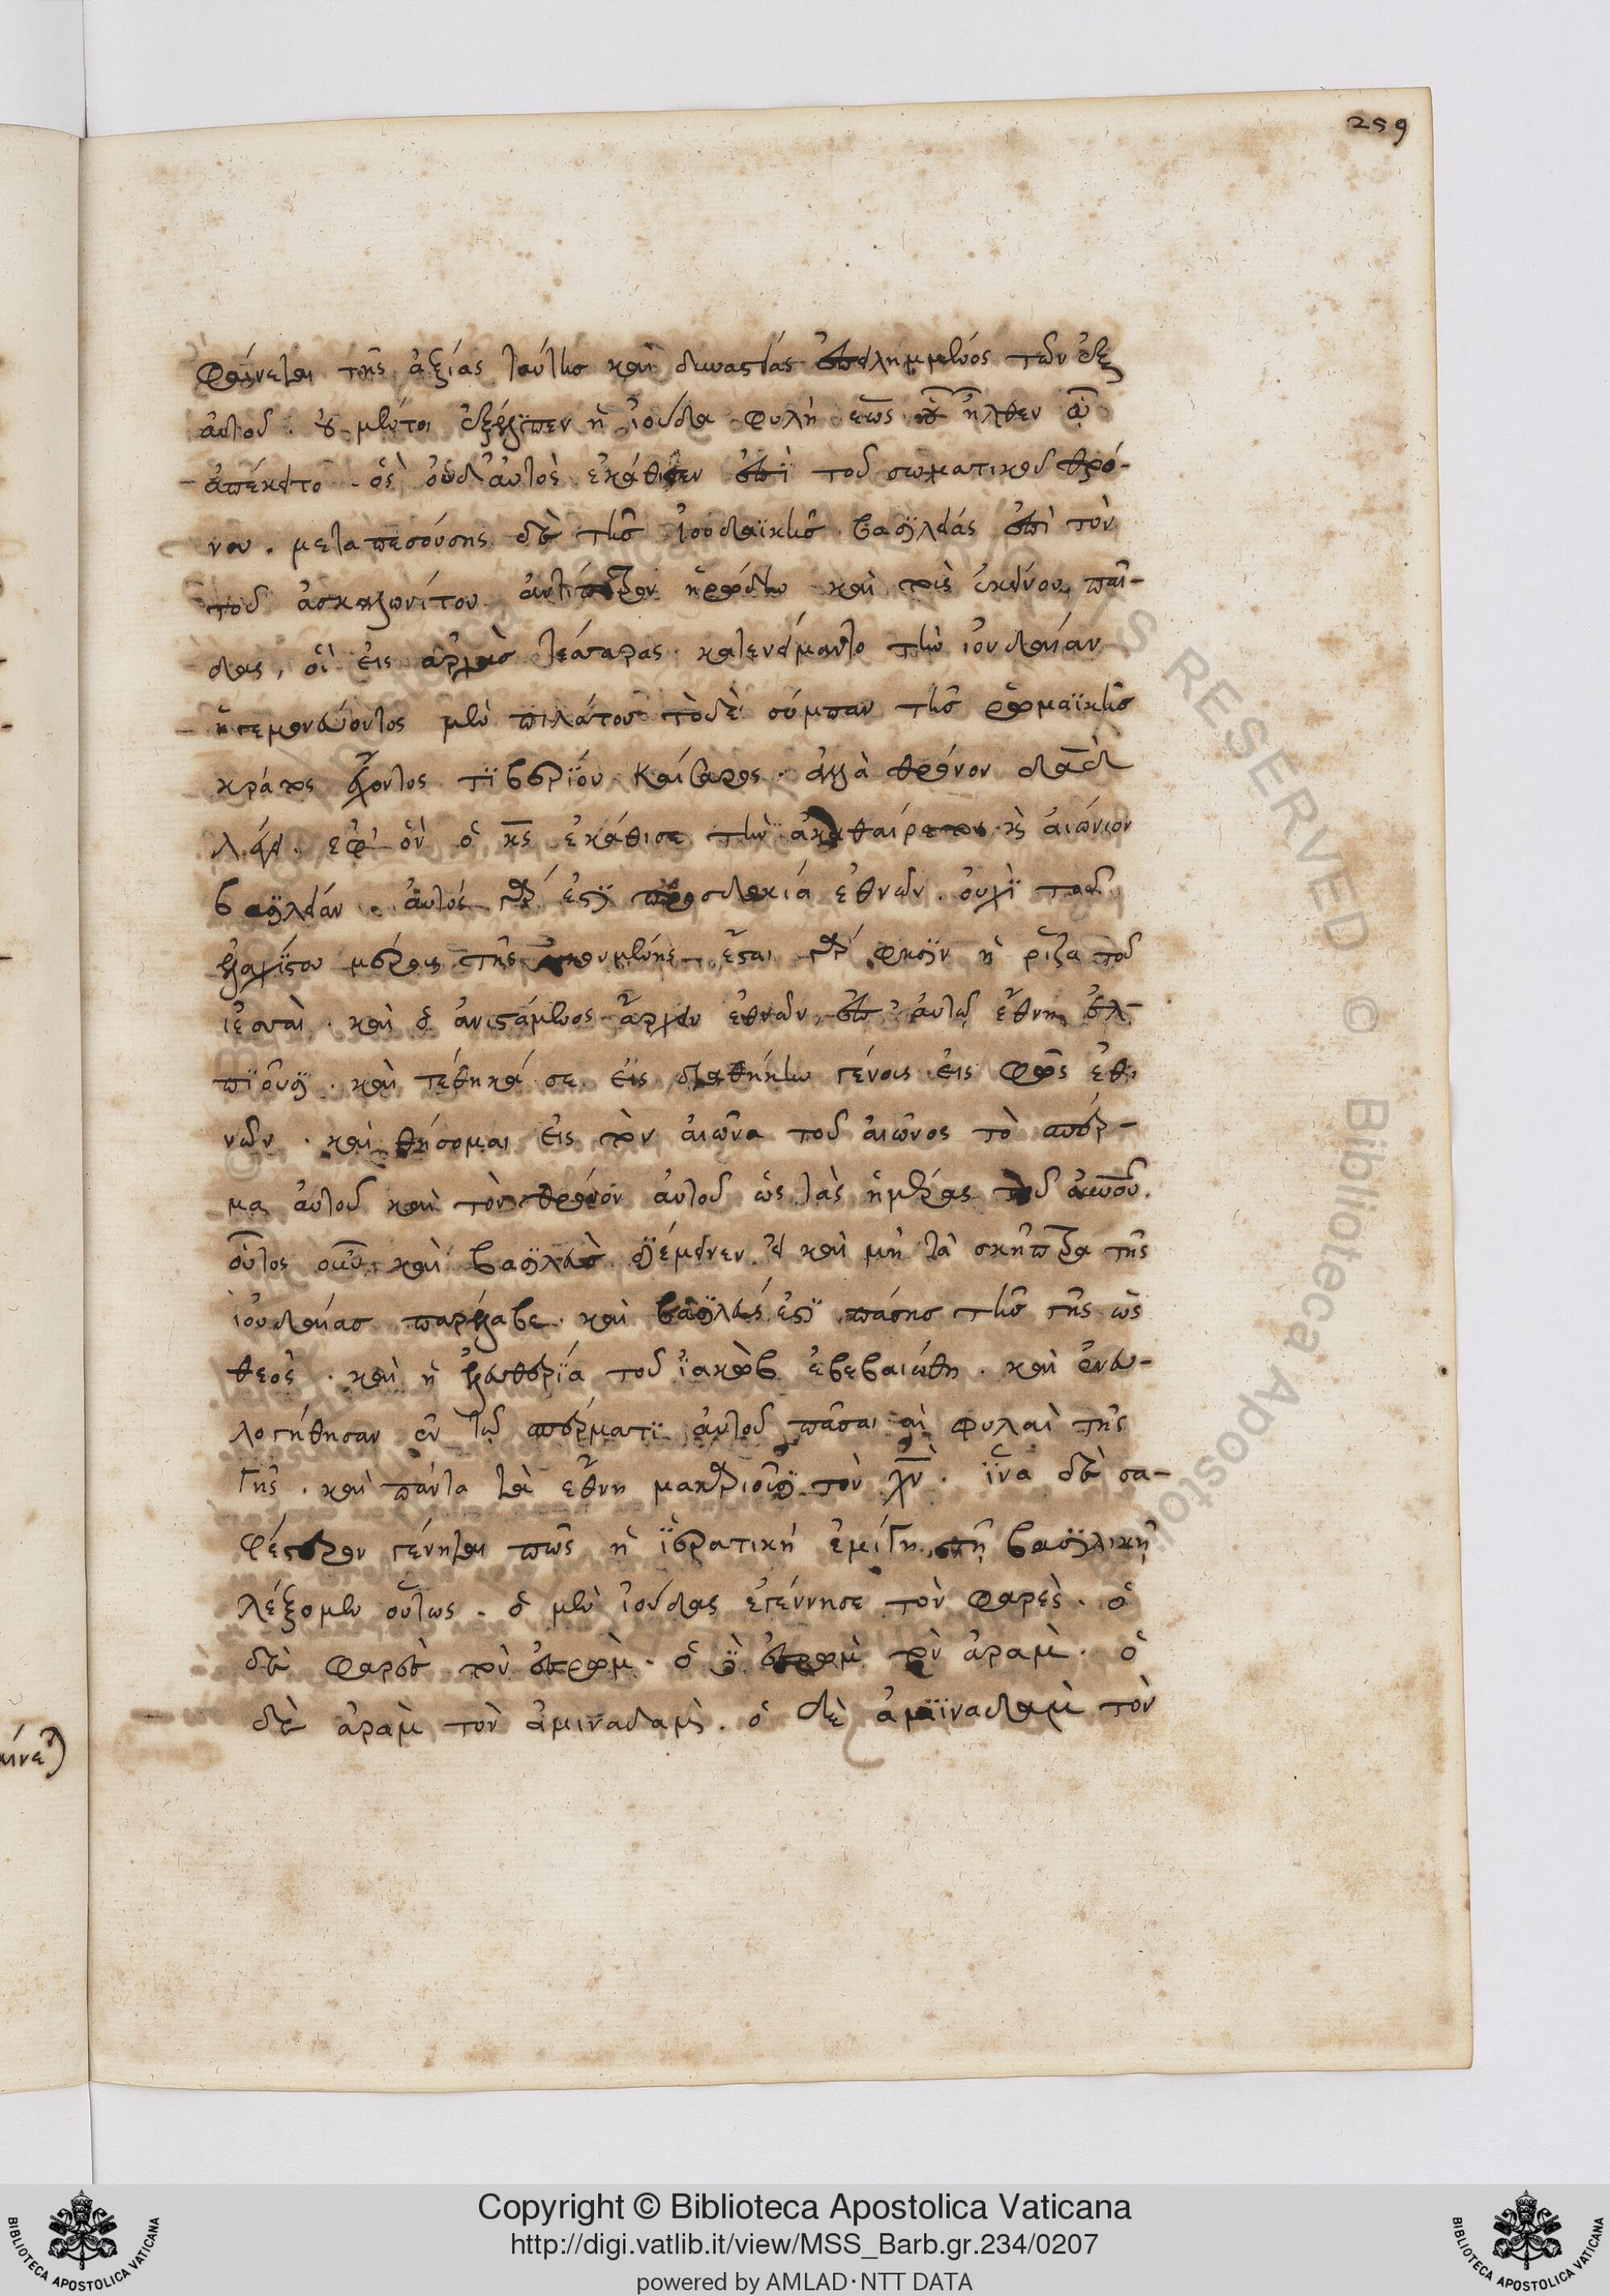 259
φαίνεται τῆς ἀξίας ταύτης καὶ δυναστείας ἐπειλημμένος τῶν ἐξ
αὐτοῦ. οὐ μέντοι ἐξέλιπεν ἡ ἰούδα φυλὴ ἕως οὗ ἦλθεν ᾧ
ἀπέκειτο. ὃς οὐδ' αὐτὸς ἐκάθισεν ἐπὶ τοῦ σωματικοῦ θρό-
νου. μεταπεσούσης δὲ τῆς ἰουδαϊκῆς βασιλείας ἐπὶ τὸν
τοῦ ἀσκαλωνίτου ἀντιπάτρου ἡρώδην καὶ τοὺς ἐκείνου παῖ-
δας, οἳ εἰς ἀρχὰς τέσσαρας κατενείμαντο τὴν ἰουδαίαν
ἡγεμονεύοντος μὲν πιλάτου τὸ δὲ σύμπαν τῆς ῥωμαϊκῆς
κράτος ἔχοντος τιβερίου καίσαρος. ἀλλὰ θρόνον δα̅δ
λέγει. ἐφ' ὃν ὁ κ̅ς̅ ἐκάθισε τὴν ἀκαθαίρετον κ̀ αἰώνιον
βασιλείαν. αὐτός γάρ ἐστι προσδοκία ἐθνῶν. οὐχὶ τοῦ
ἐλαχίστου μέρους τῆς οἰκουμένης. ἔσται γάρ φησιν ἡ ῥίζα τοῦ
ἰεσσαὶ. καὶ ὁ ἀνιστάμενος ἄρχειν ἐθνῶν, ἐπ' αὐτῷ ἔθνη ἐλ-
πιοῦσι. καὶ τέθηκά σε εἰς διαθήκην γένους εἰς φῶς ἐθ-
νῶν. καὶ θήσομαι εἰς τὸν αἰῶνα τοῦ αἰῶνος τὸ σπέρ-
μα αὐτοῦ καὶ τὸν θρόνον αὐτοῦ ὡς τὰς ἡμέρας τοῦ οὐ̅νοῦ.
οὗτος οὖν καὶ βασιλεὺς διέμεινεν εἰ καὶ μὴ τὰ σκῆπτρα τῆς
ἰουδαίας παρέλαβε. καὶ βασιλεύς ἐστι πάσης τῆς γῆς ὡς
θεὸς. καὶ ἡ ἐλευθερία τοῦ ἰακὼβ ἐβεβαιώθη. καὶ ἐνευ-
λογήθησαν ἐν τῷ σπέρματι αὐτοῦ πᾶσαι αἱ φυλαὶ τῆς
γῆς. καὶ πάντα τὰ ἔθνη μακαριοῦσι τὸν χ̅ν̅. ἵνα δὲ σα-
φέστερον γένηται πῶς ἡ ἱερατικὴ ἐμίγη τῇ βασιλικῇ
λέξομεν οὕτως. ὁ μὲν ἰούδας ἐγέννησε τὸν φαρὲς. ὁ
δὲ φαρὲς τὸν ἐσρὼμ. ὁ δὲ ἐσρὼμ τὸν ἀρὰμ. ὁ
δὲ ἀρὰμ τὸν ἀμιναδαμ. ὁ δὲ ἀμιναδαμ τὸν
Copyright © Biblioteca Apostolica Vaticana
http://digi.vatlib.it/view/MSS_Barb.gr.234/0207
powered by AMLAD·NTT DATA